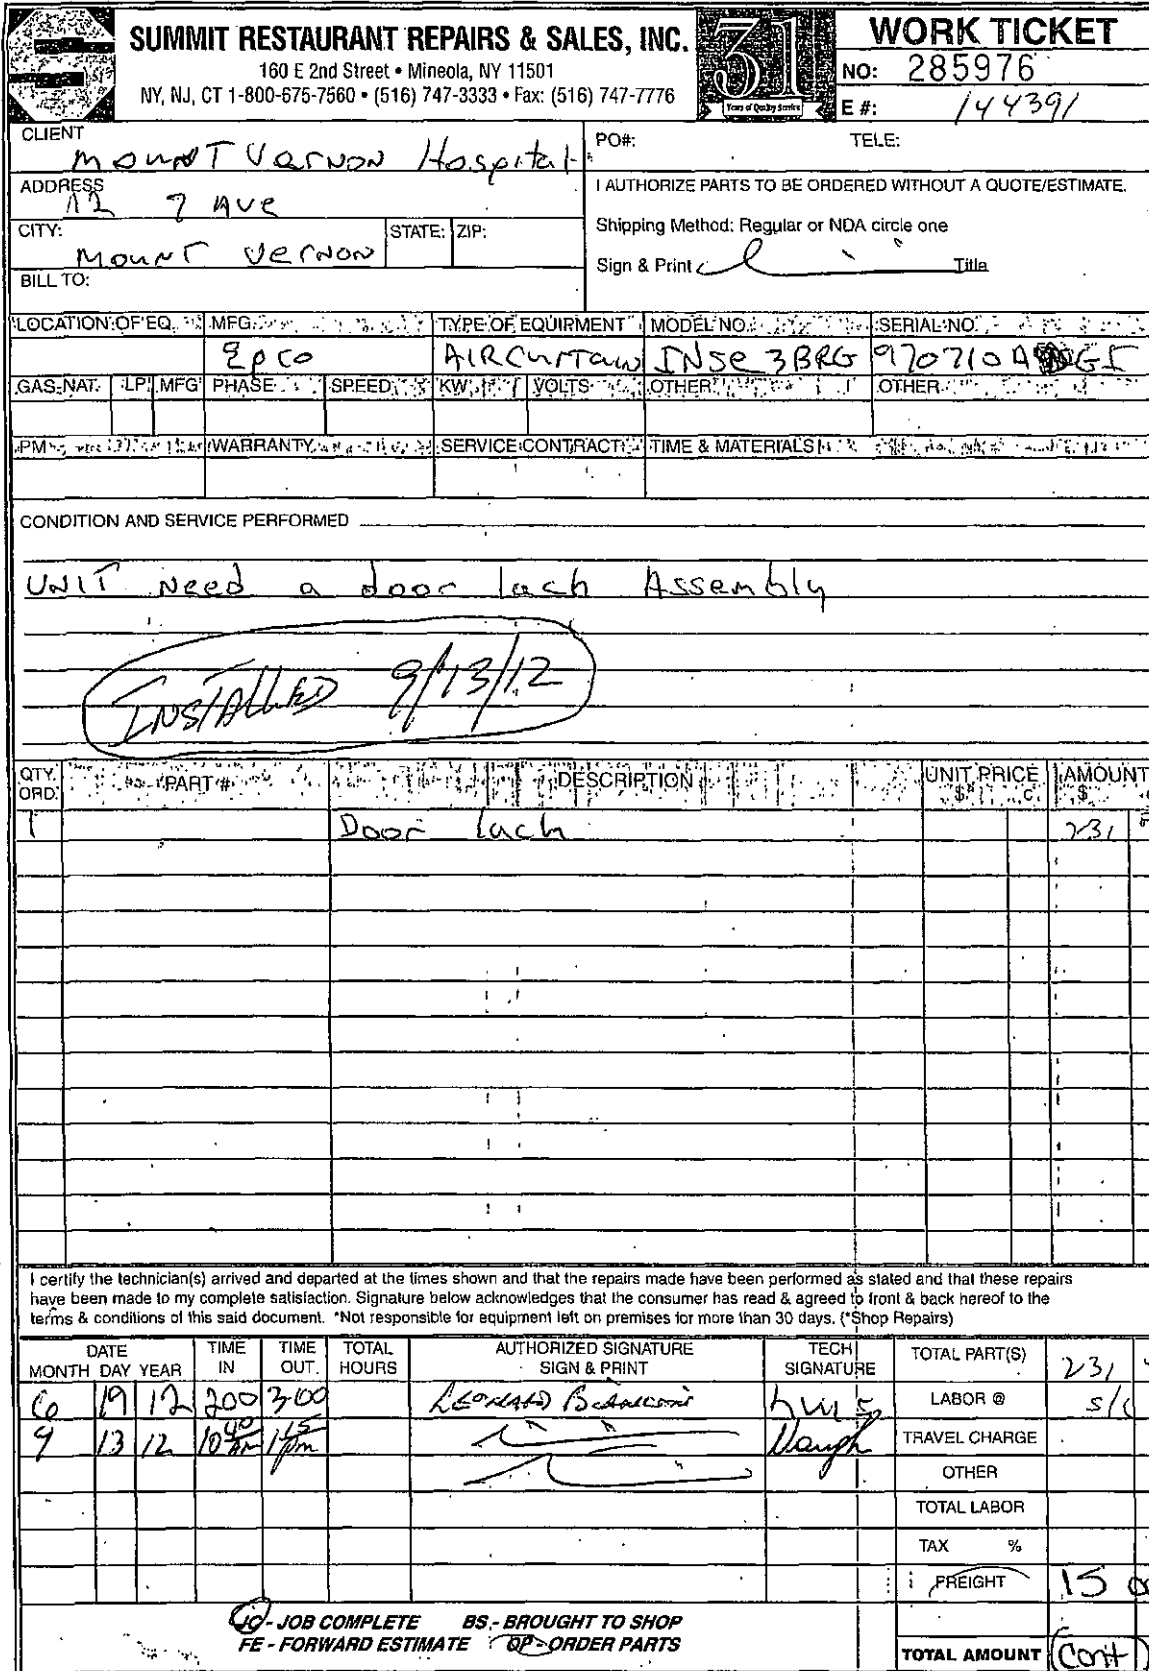 SUMMIT RESTAURANT REPAIRS & SALES, INC.
160 E 2nd Street • Mineola, NY 11501
NY, NJ, CT 1-800-675-7560 • (516) 747-3333 • Fax: (516) 747-7776
31
Years of Quality Service
WORK TICKET
NO: 285976
E #: 144391
CLIENT
Mount Vernon Hospital
PO#: TELE:
ADDRESS
12 7 Ave
I AUTHORIZE PARTS TO BE ORDERED WITHOUT A QUOTE/ESTIMATE.
CITY: Mount Vernon STATE: ZIP:
Shipping Method: Regular or NDA circle one
Sign & Print Title
BILL TO:
LOCATION OF EQ. MFG. TYPE OF EQUIPMENT MODEL NO. SERIAL NO.
Epco AIR Curtain INSe 3BRG
GAS-NAT. LP MFG PHASE SPEED KW VOLTS OTHER OTHER
PM WARRANTY SERVICE CONTRACT TIME & MATERIALS
CONDITION AND SERVICE PERFORMED
UNIT Need a door lach Assembly
INSTALLED 9/13/12
QTY. ORD. PART # DESCRIPTION UNIT PRICE AMOUNT
$ C $
1 Door lach 231
I certify the technician(s) arrived and departed at the times shown and that the repairs made have been performed as stated and that these repairs
have been made to my complete satisfaction. Signature below acknowledges that the consumer has read & agreed to front & back hereof to the
terms & conditions of this said document. *Not responsible for equipment left on premises for more than 30 days. (*Shop Repairs)
DATE TIME TIME TOTAL AUTHORIZED SIGNATURE TECH TOTAL PART(S) 231
MONTH DAY YEAR IN OUT. HOURS SIGN & PRINT SIGNATURE
6 19 12 200 300 LABOR @ s/c
9 13 12 10 40 AM 1 15 pm TRAVEL CHARGE
OTHER
TOTAL LABOR
TAX %
FREIGHT 15 00
JC - JOB COMPLETE BS - BROUGHT TO SHOP
FE - FORWARD ESTIMATE OP - ORDER PARTS
TOTAL AMOUNT Cont